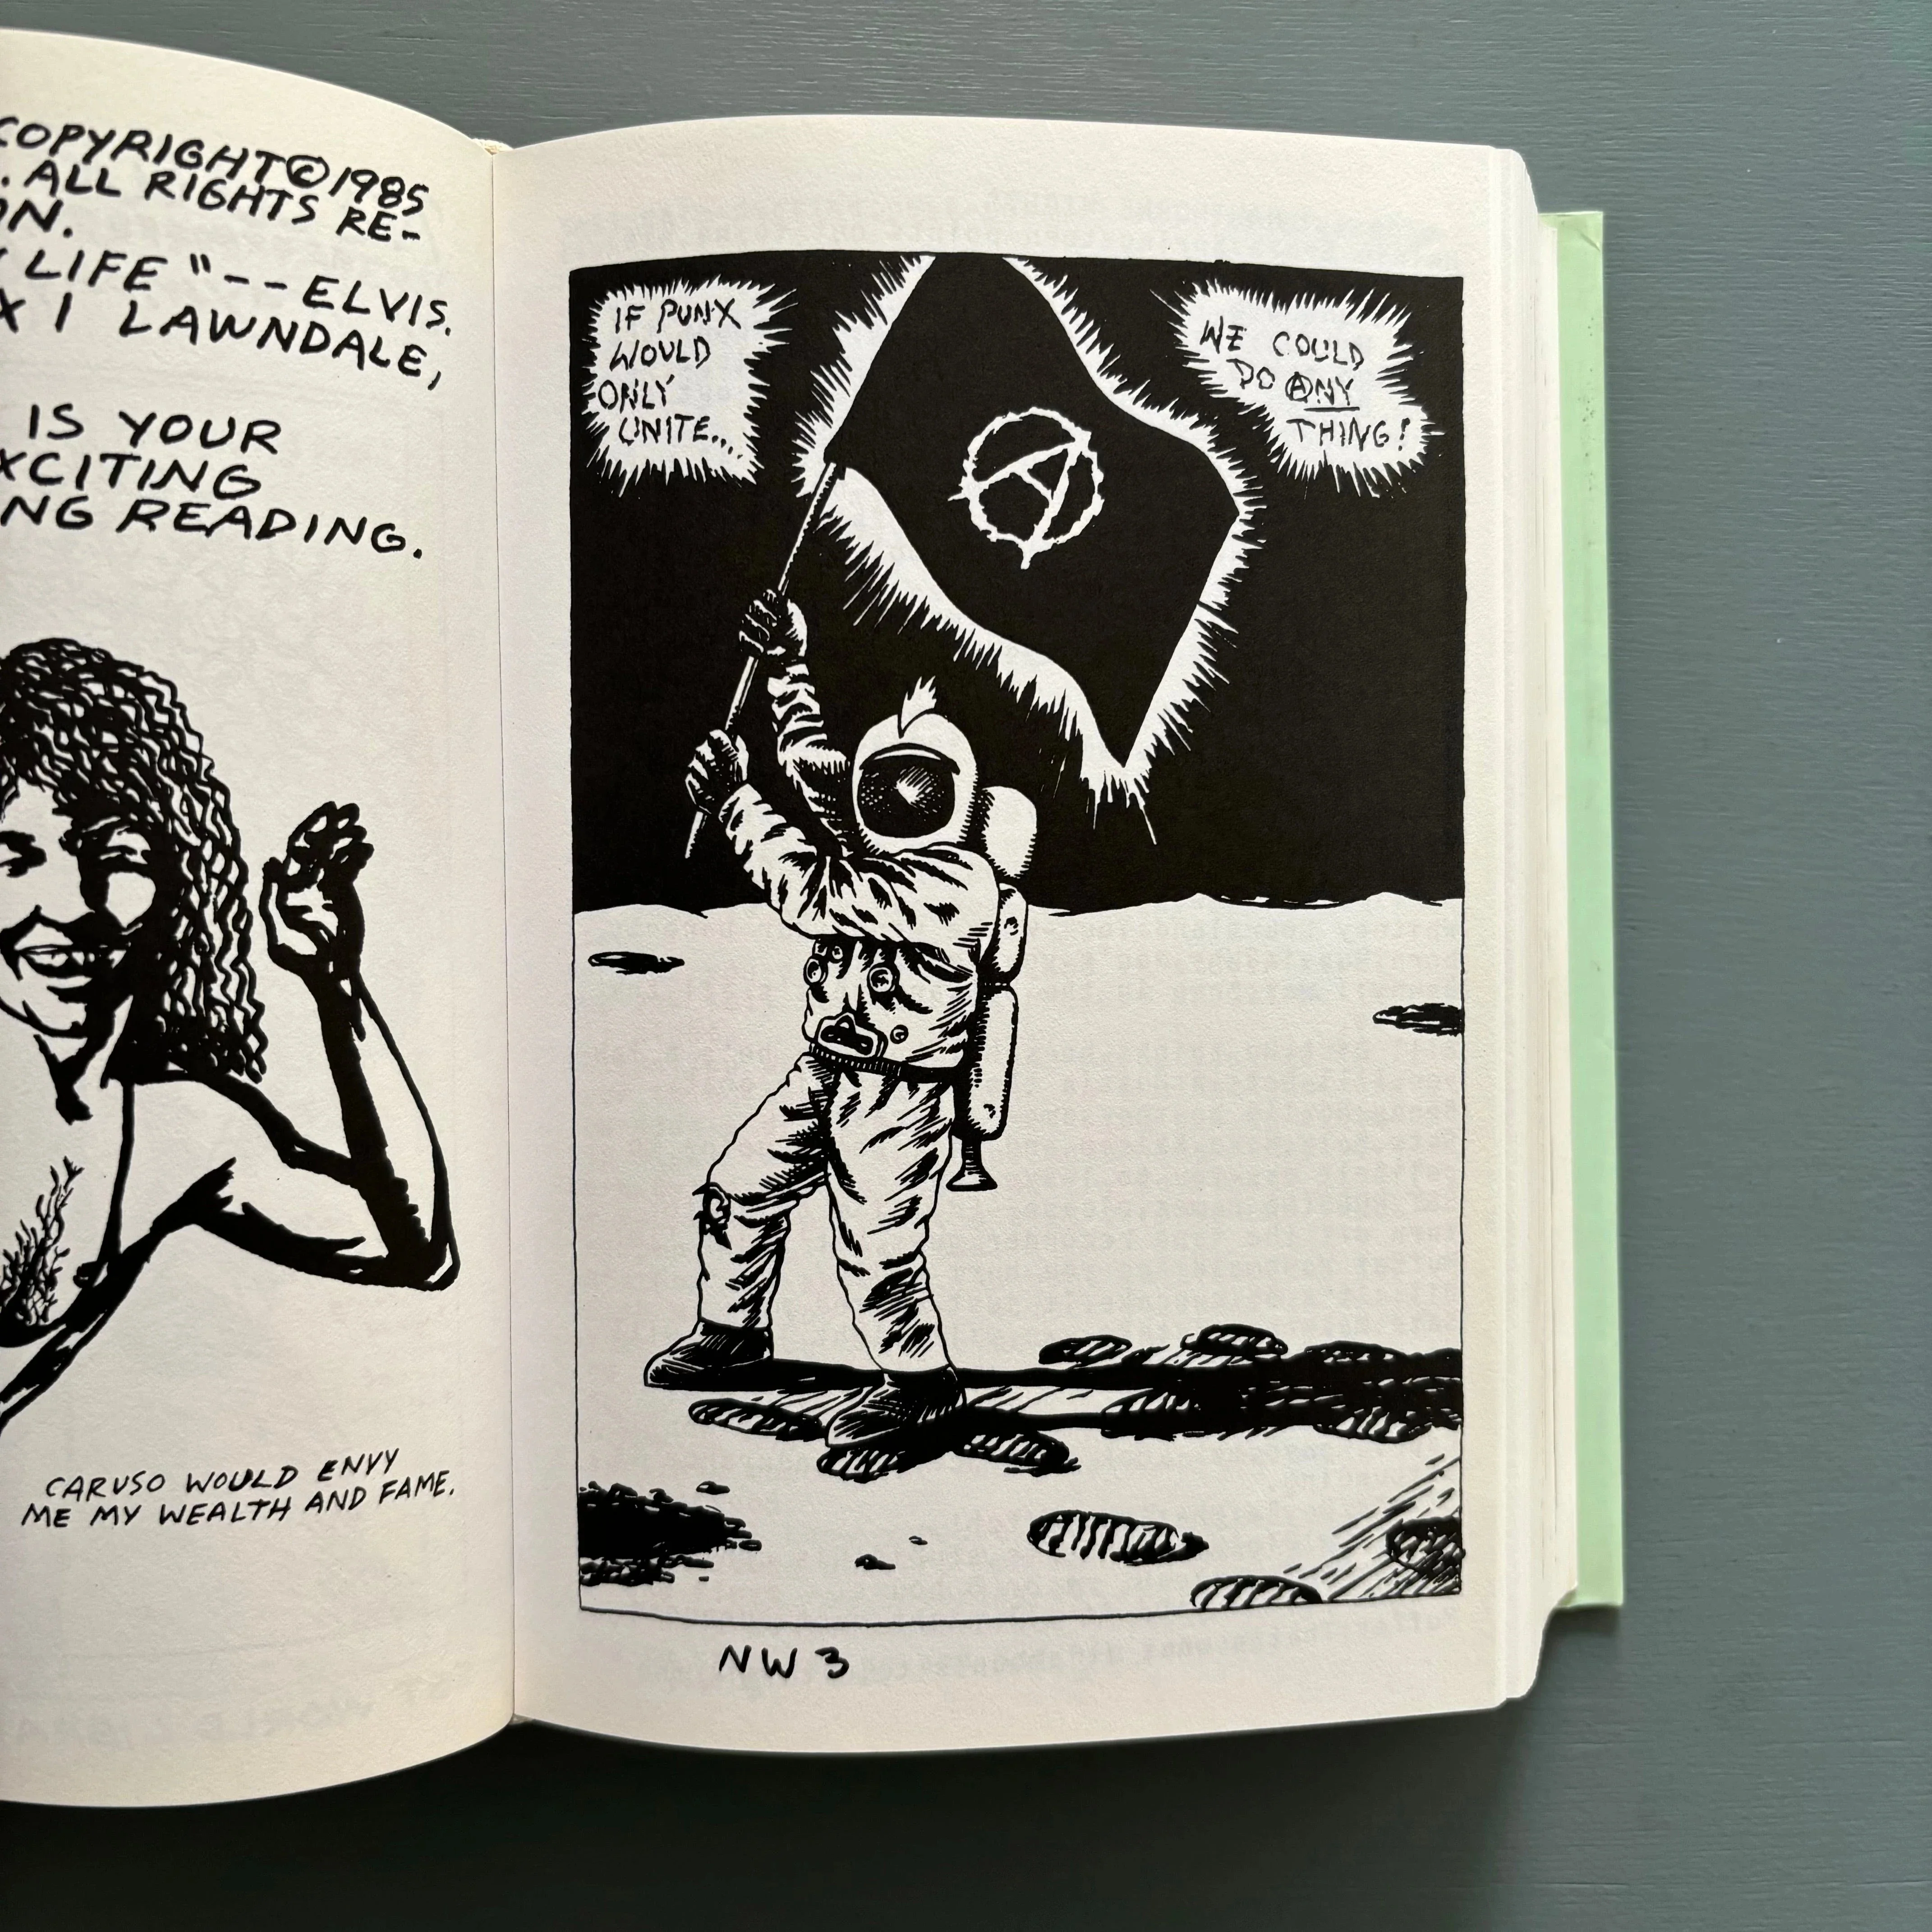 COPYRIGHT©1985
. ALL RIGHTS RE-
ON.
LIFE "--ELVIS.
X 1 LAWNDALE,
IS YOUR
XCITING
NG READING.
CARUSO WOULD ENVY
ME MY WEALTH AND FAME.
IF PUNX
WOULD
ONLY
UNITE...
WE COULD
DO ANY
THING!
A
NW 3